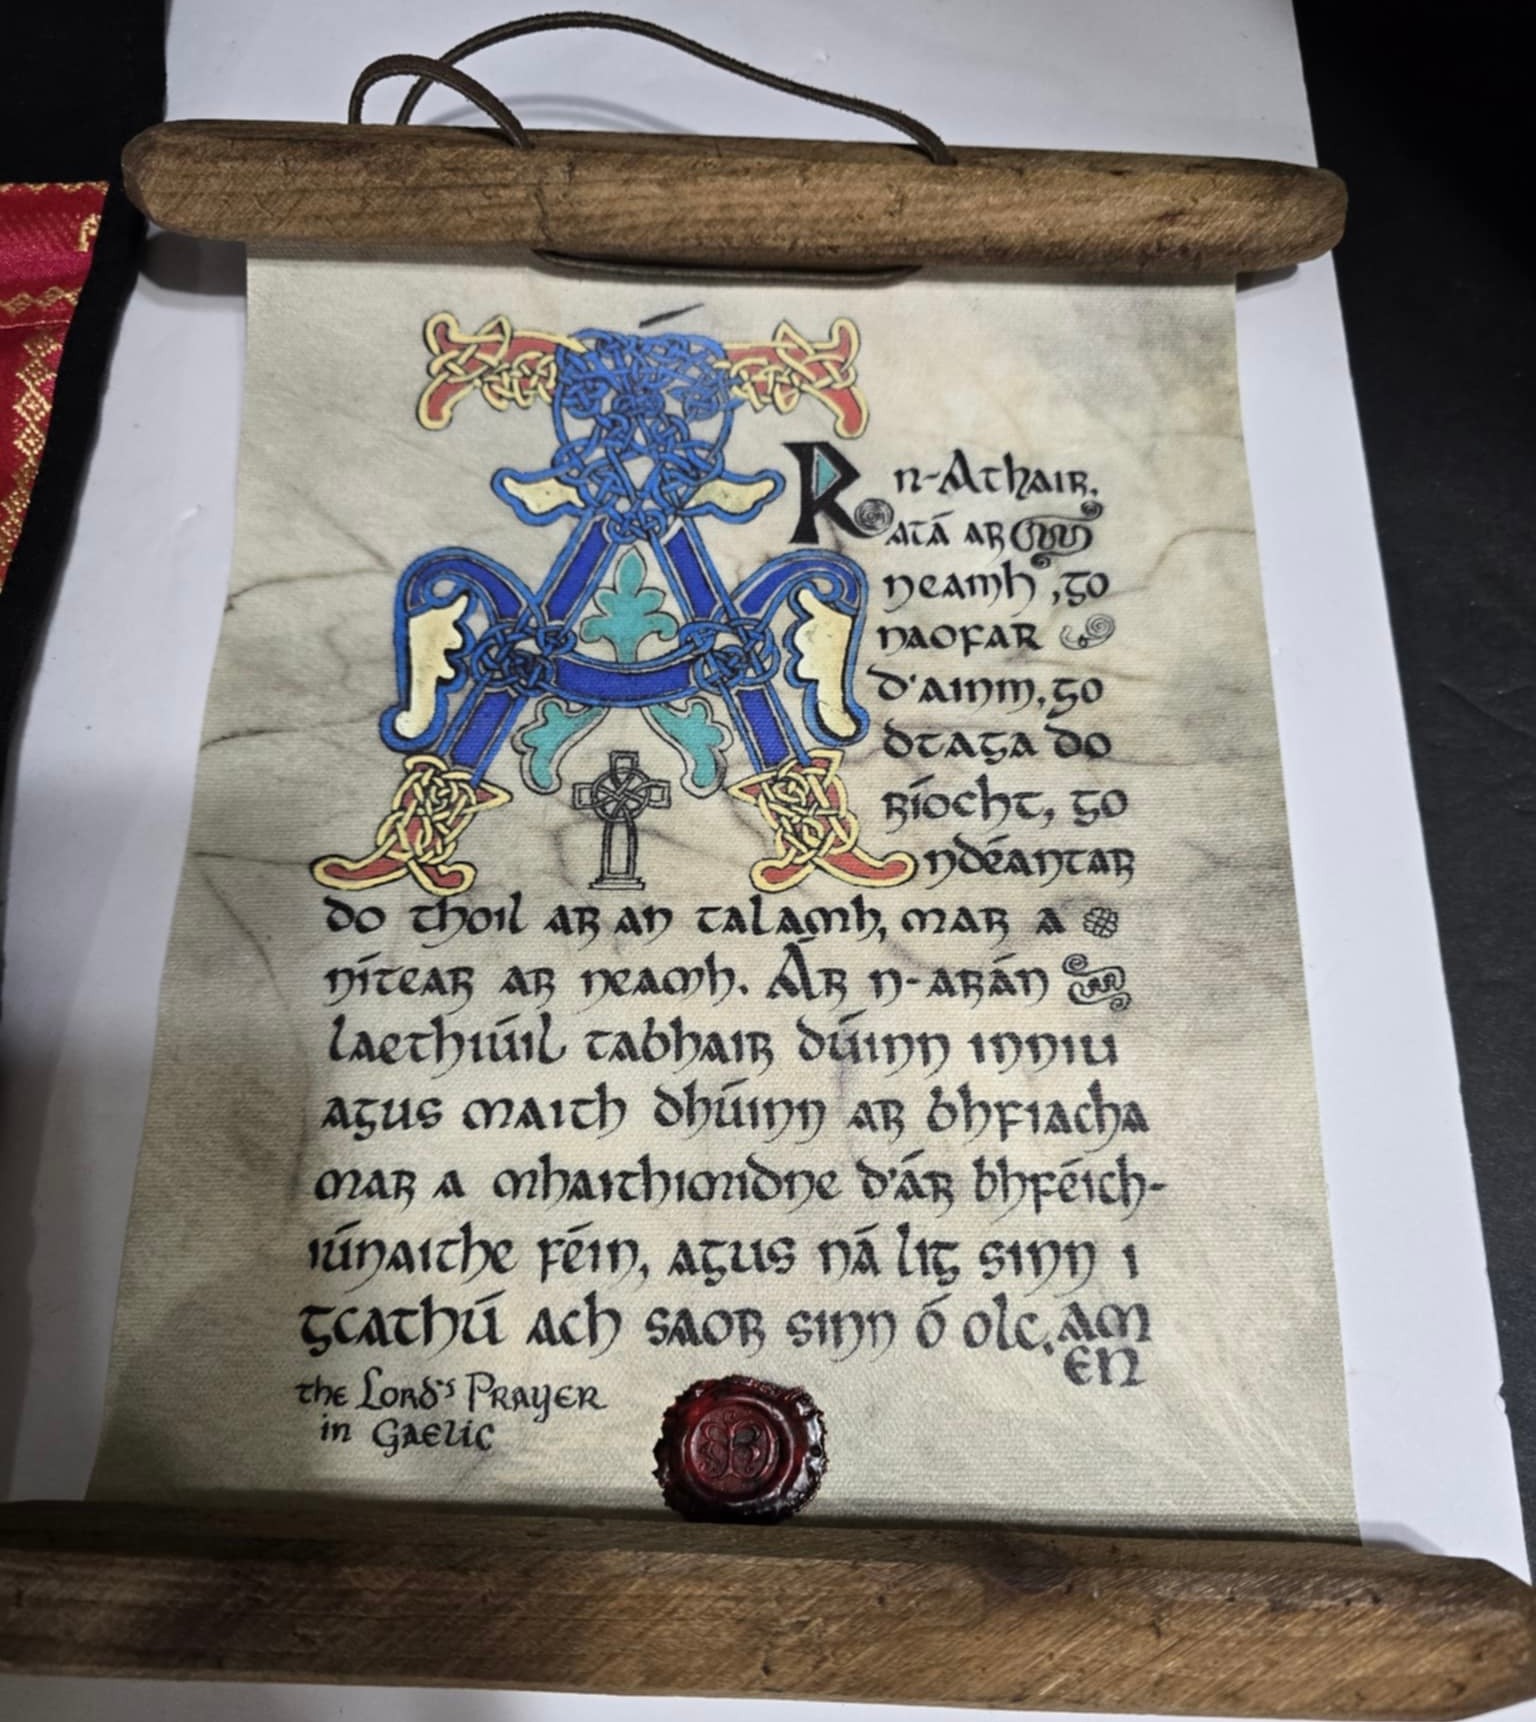 Ár n-Athair,
atá ar
neamh, go
naofar
d'ainm, go
dtaga do
ríocht, go
ndéantar
do thoil ar an talamh, mar a
nítear ar neamh. Ár n-arán
laethiúil tabhair dúinn inniu
agus maith dhúinn ar bhfiacha
mar a mhaithimidne d'ár bhféich-
iúnaithe féin, agus ná lig sinn i
gcathú ach saor sinn ó olc. am
en
the Lord's Prayer
in Gaelic